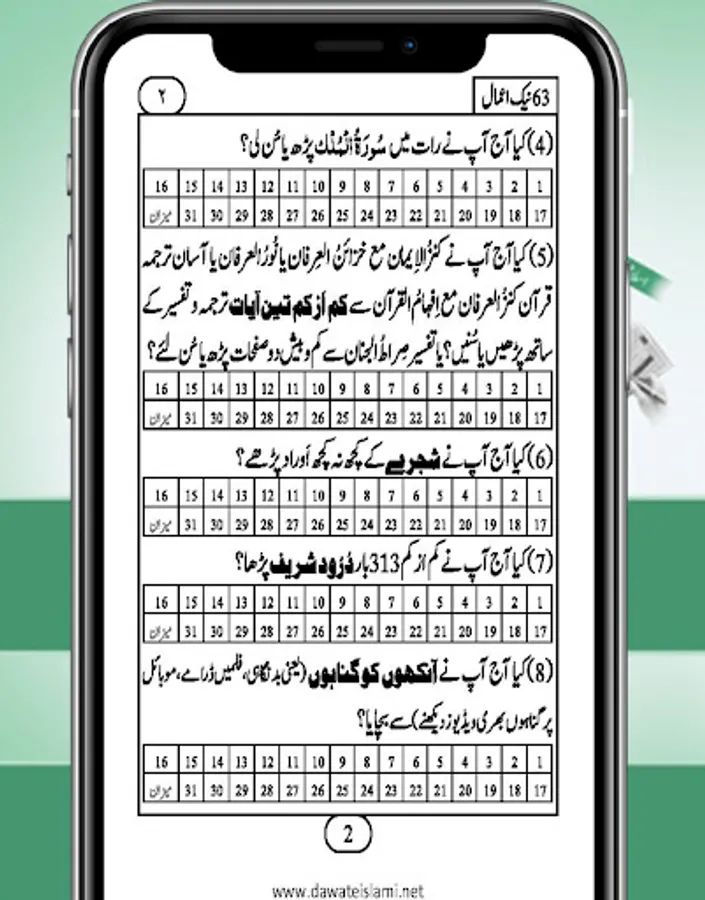 63 نیک اعمال
۲
(4) کیا آج آپ نے رات میں سُورَۃُ الْمُلْك پڑھ یا سُن لی؟
1 2 3 4 5 6 7 8 9 10 11 12 13 14 15 16
17 18 19 20 21 22 23 24 25 26 27 28 29 30 31 میزان
(5) کیا آج آپ نے کنزُالایمان مع خزائنُ العِرفان یا نُورُ العرفان یا آسان ترجمہ
قرآن کنزُ العرفان مع اِفہامُ القرآن سے کم از کم تین آیات ترجمہ و تفسیر کے
ساتھ پڑھیں یا سُنیں؟ یا تفسیر صِراطُ الجنان سے کم و بیش دو صفحات پڑھ یا سُن لئے؟
1 2 3 4 5 6 7 8 9 10 11 12 13 14 15 16
17 18 19 20 21 22 23 24 25 26 27 28 29 30 31 میزان
(6) کیا آج آپ نے شجرے کے کچھ نہ کچھ اَوراد پڑھے؟
1 2 3 4 5 6 7 8 9 10 11 12 13 14 15 16
17 18 19 20 21 22 23 24 25 26 27 28 29 30 31 میزان
(7) کیا آج آپ نے کم از کم 313 بار دُرُود شریف پڑھا؟
1 2 3 4 5 6 7 8 9 10 11 12 13 14 15 16
17 18 19 20 21 22 23 24 25 26 27 28 29 30 31 میزان
(8) کیا آج آپ نے آنکھوں کو گناہوں (یعنی بدنگاہی، فلمیں ڈرامے، موبائل
پر گناہوں بھری ویڈیوز دیکھنے) سے بچایا؟
1 2 3 4 5 6 7 8 9 10 11 12 13 14 15 16
17 18 19 20 21 22 23 24 25 26 27 28 29 30 31 میزان
2
www.dawateislami.net